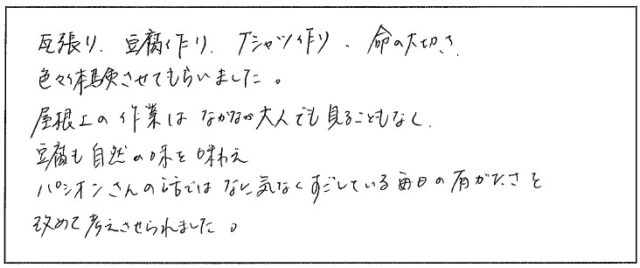 瓦張り、豆腐作り、Tシャツ作り、命の大切さ、
色々体験させてもらいました。
屋根上の作業はなかなか大人でも見ることもなく、
豆腐も自然の味を味わえ
パシオンさんの話ではなに気なくすごしている毎日の有がたさを
改めて考えさせられました。